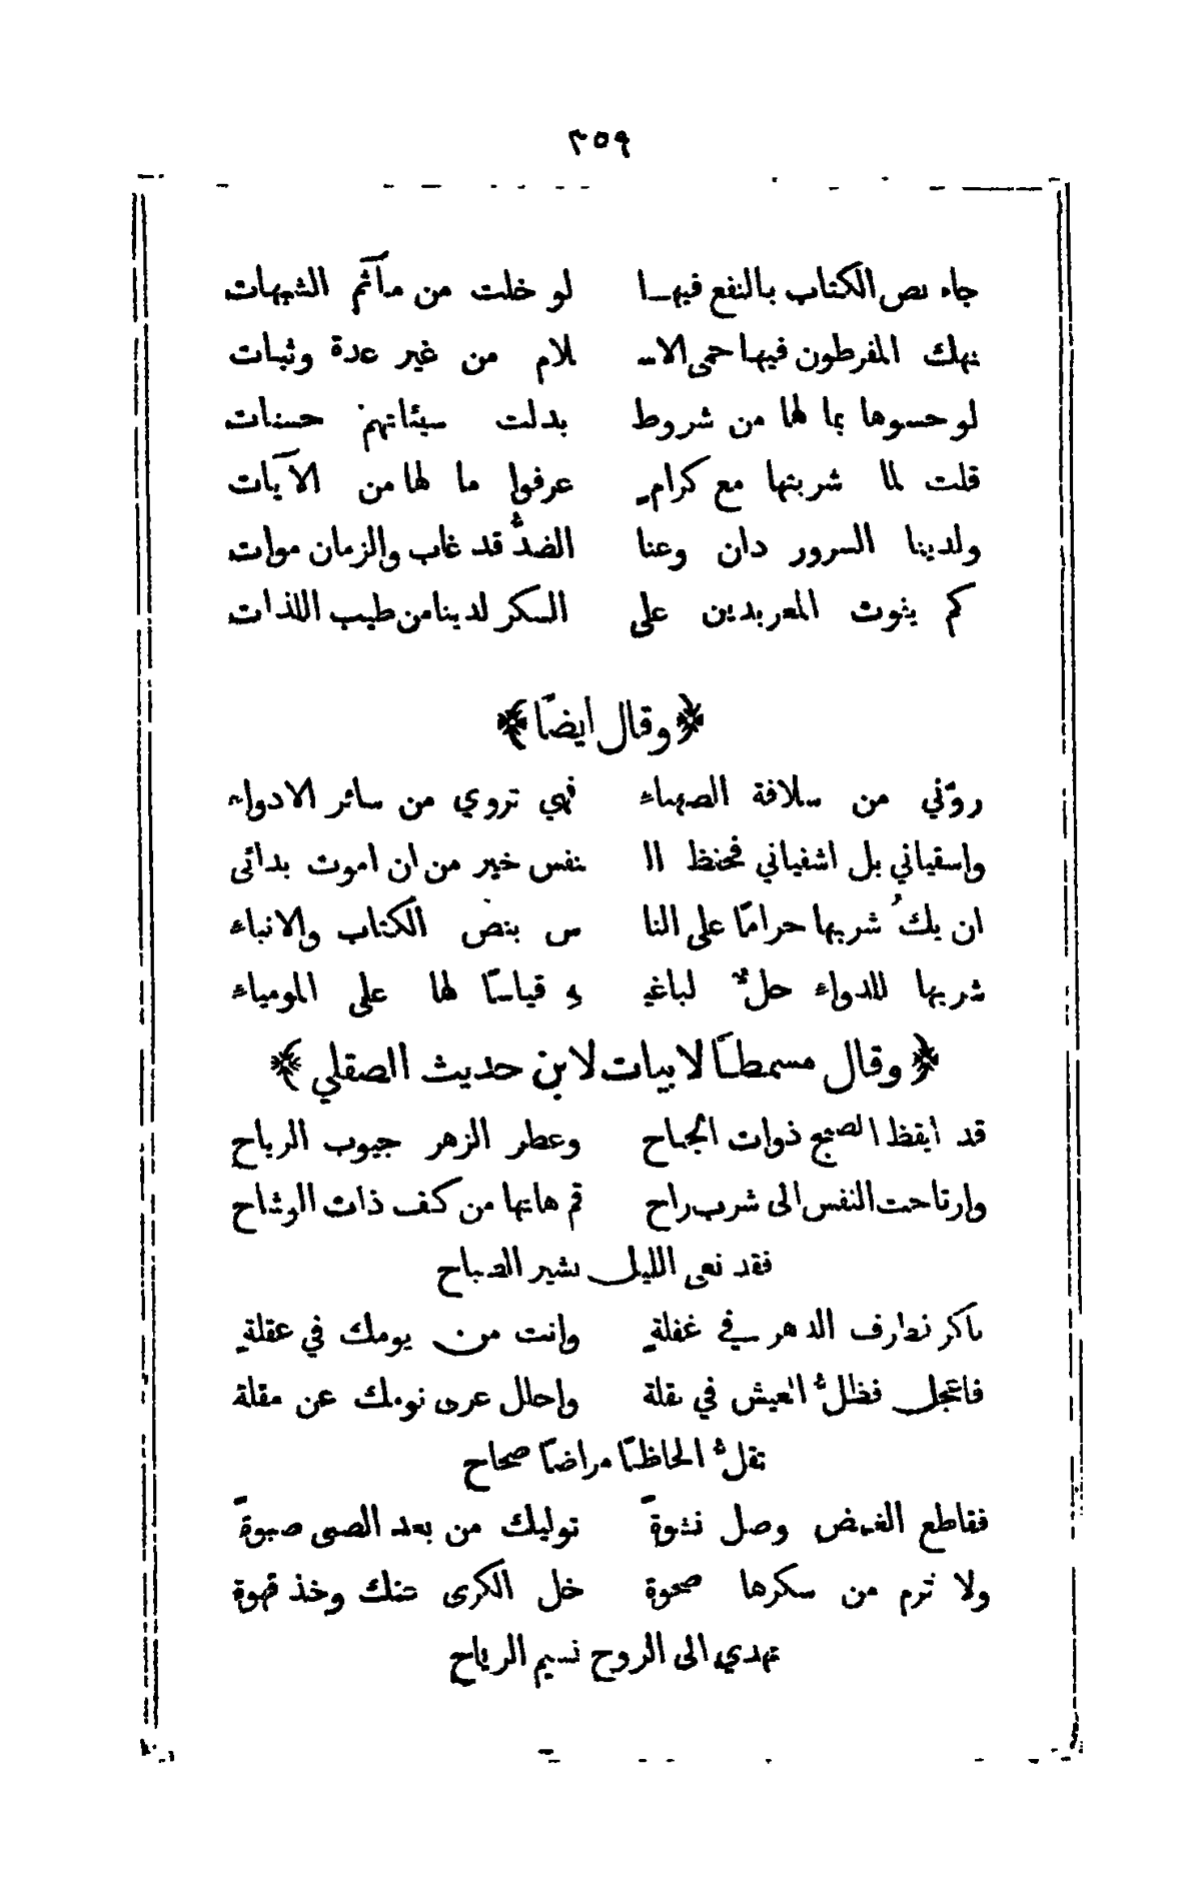 ٣٥٩
جاء نص الكتاب بالنفع فيهـا لو خلت من مآثم الشبهات
نهك المفرطون فيها حمى الاسـ ـلام من غير عدة وثبات
لو حسوها بما لها من شروط بدلت سيئاتهم حسنات
قلت لما شربتها مع كرامٍ عرفوا ما لها من الآيات
ولدينا السرور دان وعنا الضدُّ قد غاب والزمان موات
كم يثوت المعربدين على السكر لدينا من طيب اللذات
﴿وقال ايضًا﴾
روّني من سلافة الصهباء فهي تروي من سائر الادواء
واسقياني بل اشفياني فحفظ الـ ـنفس خير من ان اموت بدائى
ان يكُ شربها حرامًا على النا س بنص الكتاب والانباء
شربها للدواء حلٌّ لباغيـ ـهِ قياسًا لها على المومياء
﴿وقال مسمطـًا لابيات لابن حديث الصقلي﴾
قد ايقظ الصبح ذوات الجناح وعطر الزهر جيوب الرياح
وارتاحت النفس الى شرب راح قم هاتها من كف ذات الوشاح
فقد نعى الليل بشير الصباح
باكر فطرف الدهر في غفلةٍ وانت من يومك في عقلةٍ
فاعجل فظلُّ العيش في نقلة واحلل عرى نومك عن مقلة
تقلُّ الحاظًا مراضًا صحاح
فقاطع الغمض وصل نشوةً توليك من بعد الصبى صبوةً
ولا ترم من سكرها صحوة خل الكرى عنك وخذ قهوة
تهدي الى الروح نسيم الرياح